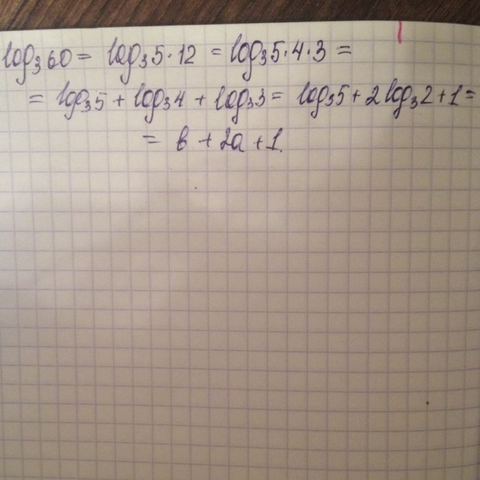 log₃60 = log₃5·12 = log₃5·4·3 =
= log₃5 + log₃4 + log₃3 = log₃5 + 2log₃2 + 1 =
= в + 2a + 1.